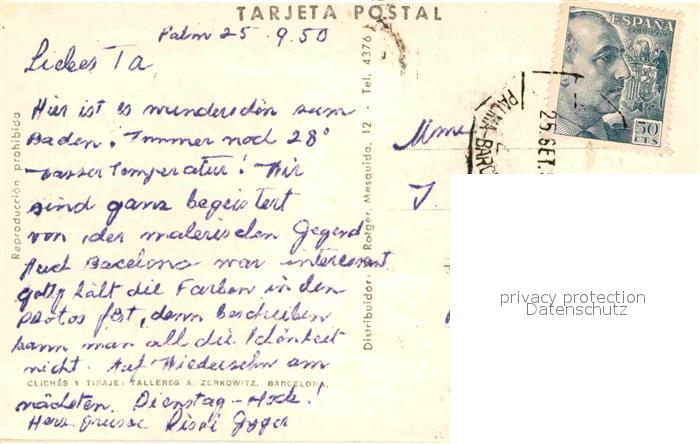 TARJETA POSTAL
Palm 25.9.50
Liebes Ta
Hier ist es wunderschön zum
Baden! Immer noch 28°
Wassertemperatur! Wir
sind ganz begeistert
von der malerischen Gegend
Auch Barcelona war interessant
hält die Farben in den
Photos fest, denn beschreiben
kann man all die Schönheit
nicht. Auf Wiedersehn am
CLICHÉS Y TIRAJE: TALLERES A. ZERKOWITZ, BARCELONA.
nächsten Dienstag-Hock!
Herz. Grüsse
Reproducción prohibida
Distribuidor: J. Rotger, Mesquida, 12 - Tel. 4376
Mme
J.
ESPAÑA
CORREOS
50
CTS
PALMA-BARC
25 SET.
privacy protection
Datenschutz